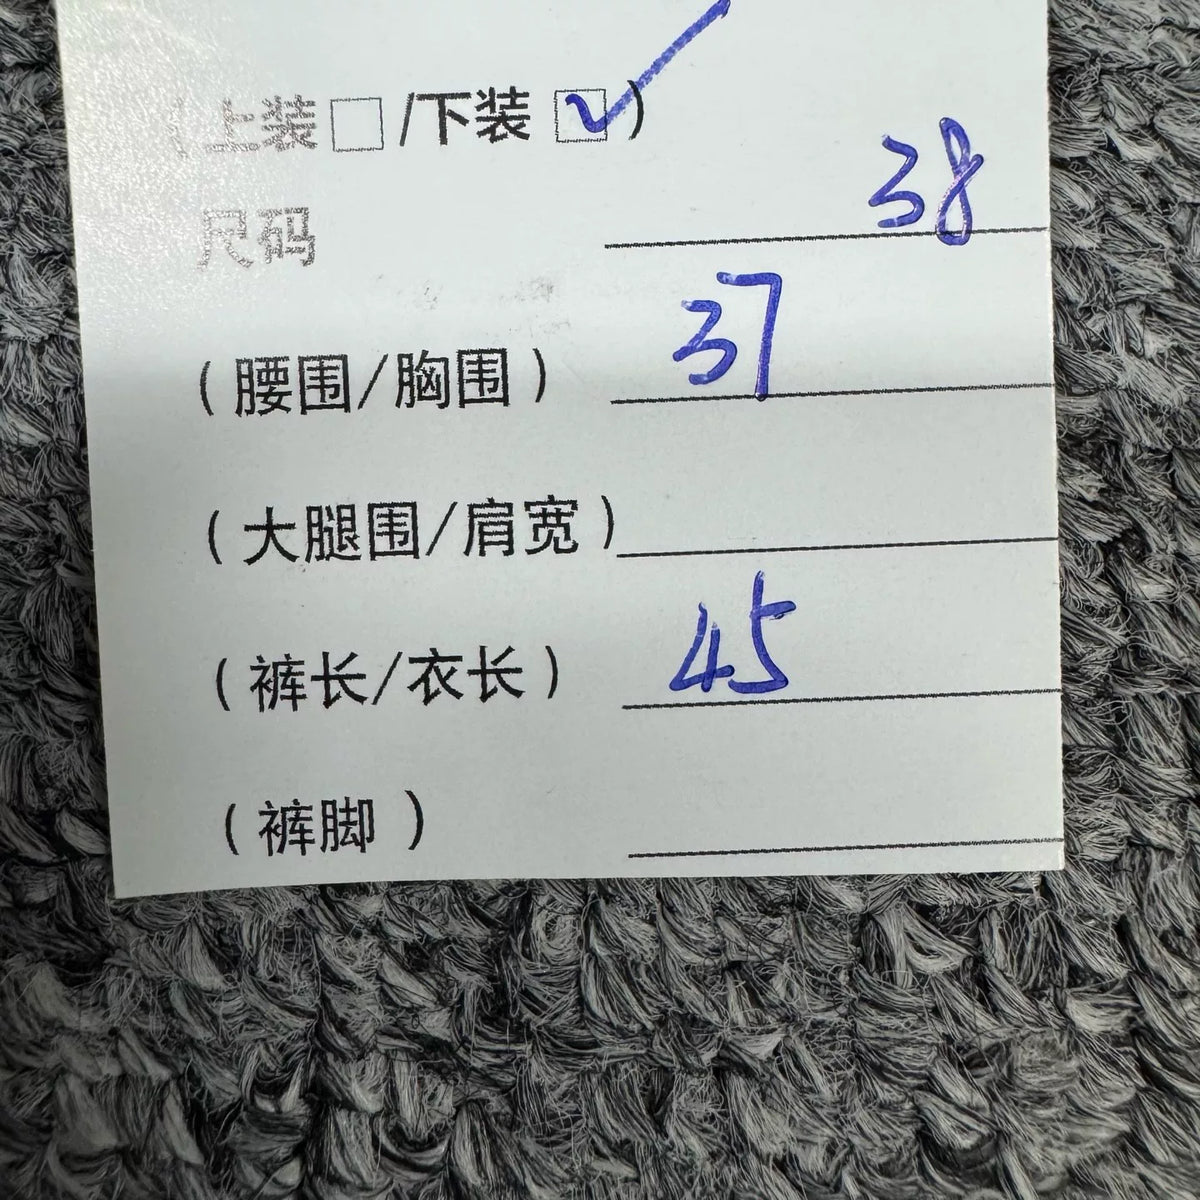 (上装□/下装☑)
尺码 38
(腰围/胸围) 37
(大腿围/肩宽)
(裤长/衣长) 45
(裤脚)